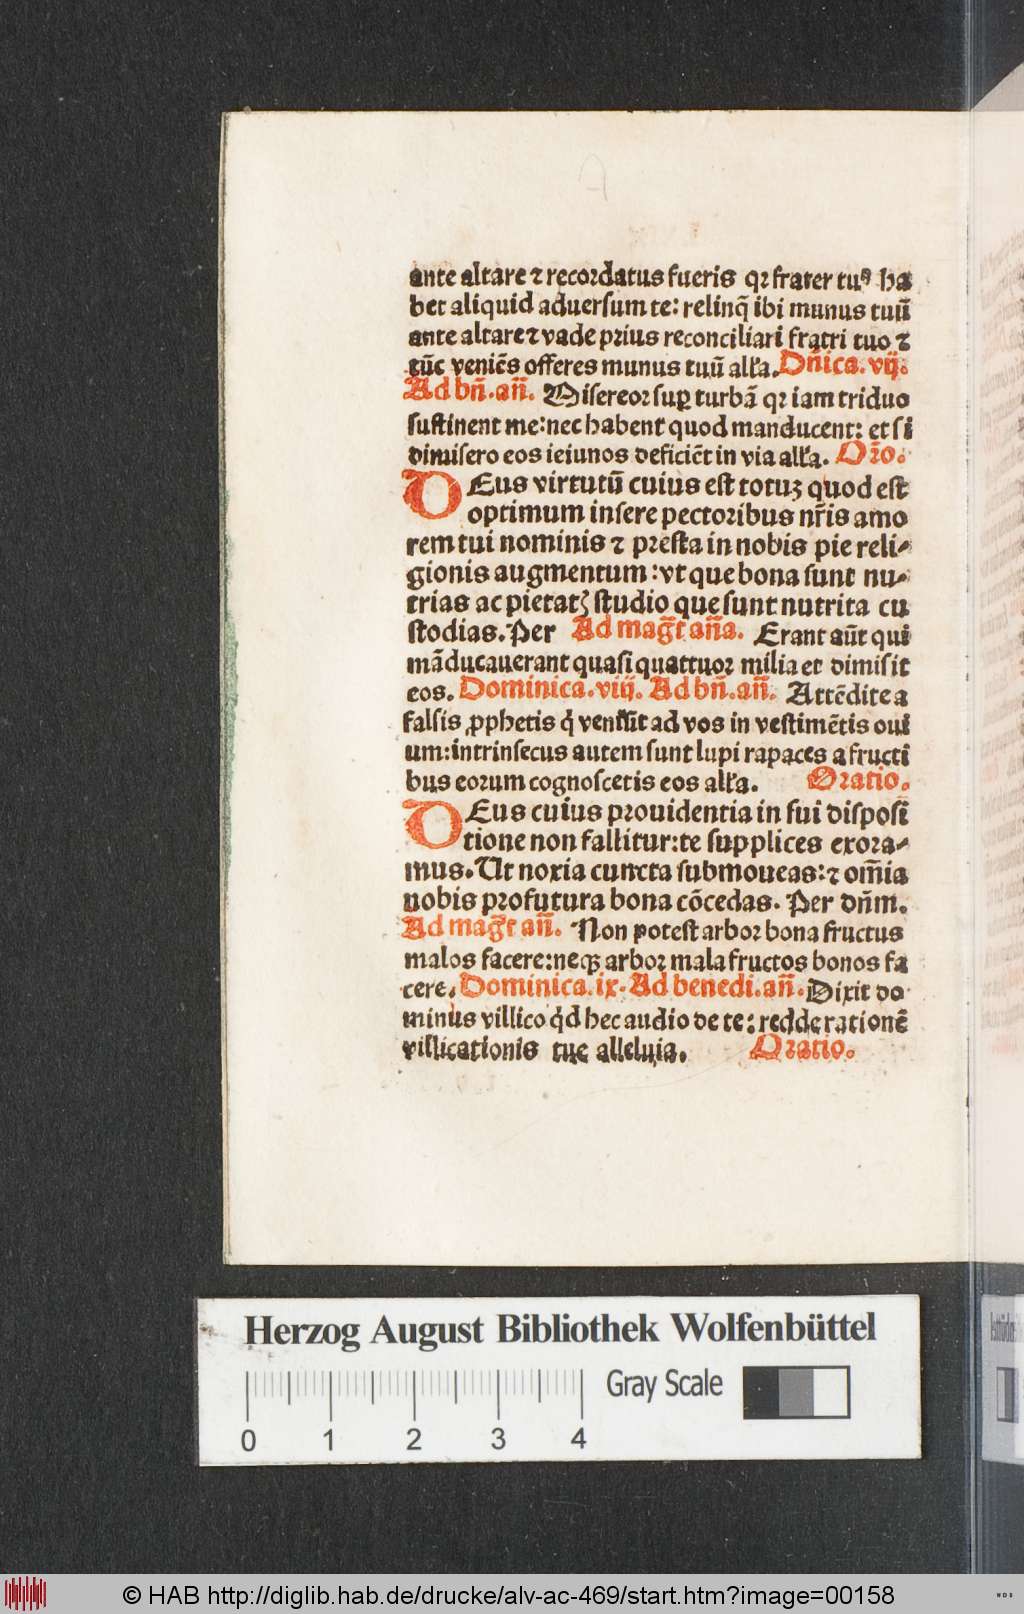 ante altare ⁊ recordatus fueris qꝛ frater tuꝰ ha
bet aliquid aduersum te: relinq̃ ibi munus tuũ
ante altare ⁊ vade prius reconciliari fratri tuo ⁊
tũc veniẽs offeres munus tuũ alľa. Dñica. vij.
Ad bñ. añ. Misereor suꝑ turbã qꝛ iam triduo
sustinent me: nec habent quod manducent: et si
dimisero eos ieiunos deficiẽt in via alľa. Oꝛ̃o.
DEus virtutũ cuius est totuꝫ quod est
optimum insere pectoribus nr̃is amo
rem tui nominis ⁊ presta in nobis pie reli-
gionis augmentum: vt que bona sunt nu-
trias ac pietatꝭ studio que sunt nutrita cu
stodias. Per Ad mag̃t añа. Erant aũt qui
mãducauerant quasi quattuor milia et dimisit
eos. Dominica. viij. Ad bñ. añ. Attẽdite a
falsis ꝓphetis q̇ veniũt ad vos in vestimẽtis oui
um: intrinsecus autem sunt lupi rapaces a fructi
bus eorum cognoscetis eos alľa. Oratio.
DEus cuius prouidentia in sui disposi
tione non fallitur: te supplices exora-
mus. Ut noxia cuncta submoueas: ⁊ om̃ia
nobis profutura bona cõcedas. Per dñm.
Ad mag̃t añ. Non potest arbor bona fructus
malos facere: neqꝫ arbor mala fructos bonos fa
cere. Dominica. ix. Ad benedi. añ. Dixit do
minus villico q̇d hec audio de te: redde rationẽ
villicationis tue alleluia. Oratio.
Herzog August Bibliothek Wolfenbüttel
Gray Scale
0 1 2 3 4
© HAB http://diglib.hab.de/drucke/alv-ac-469/start.htm?image=00158